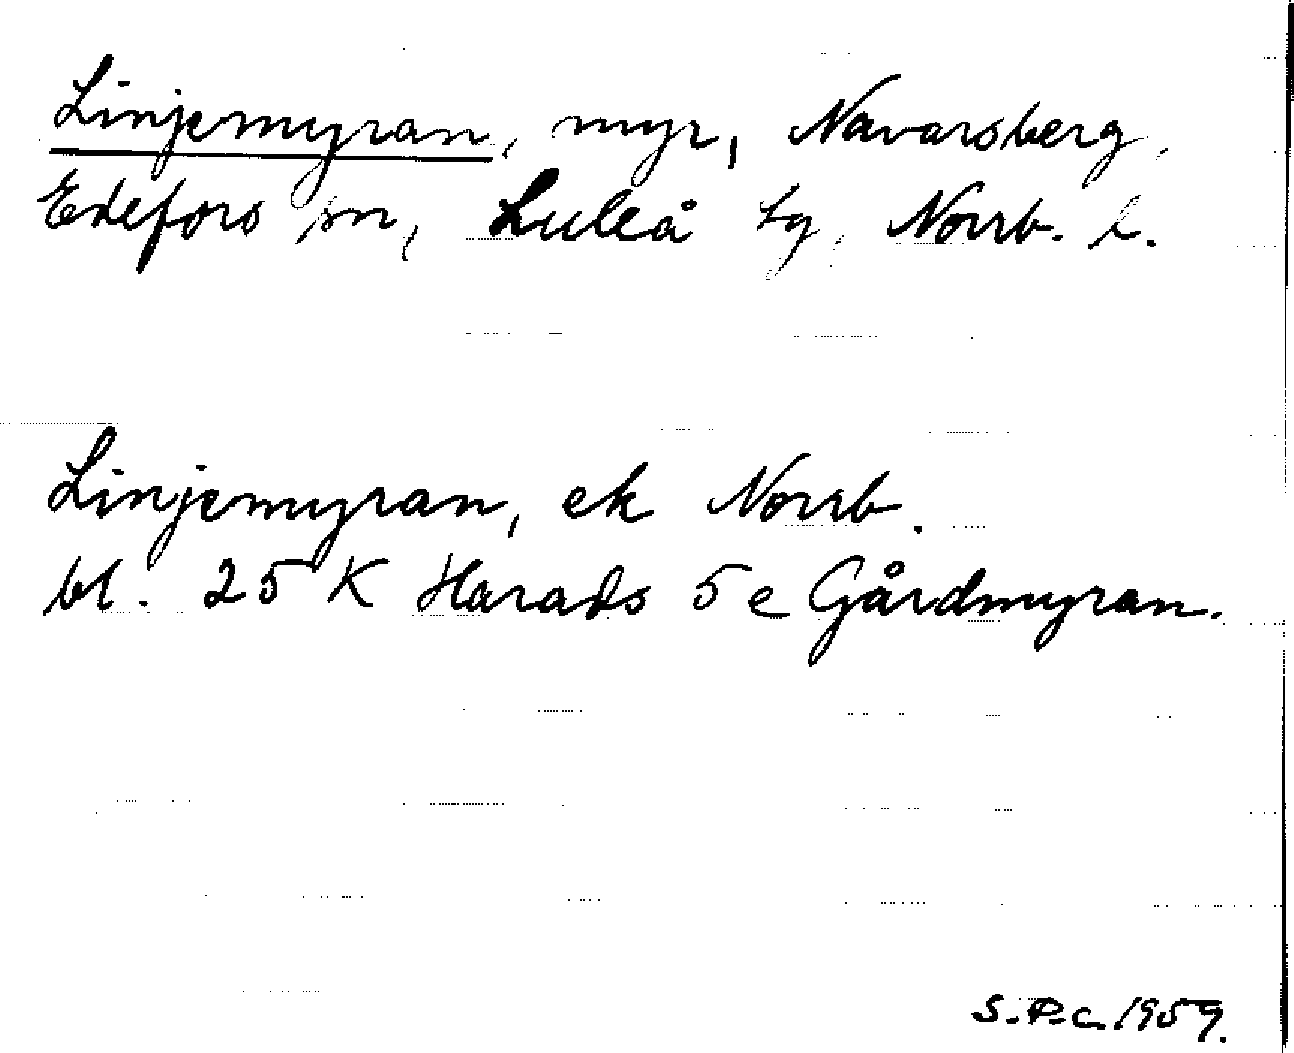 Linjemyran, myr, Navarsberg,
Edefors sn, Luleå tg, Norrb. l.
Linjemyran, ek Norrb.
bl. 25 K Harads 5 e Gårdmyran.
S.P.C. 1959.